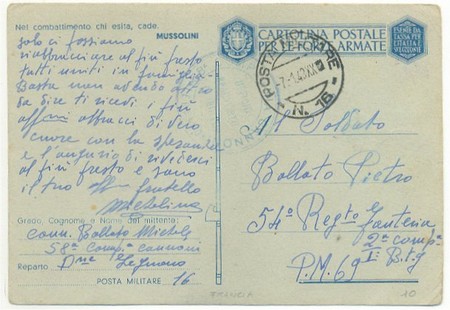 Nel combattimento chi esita, cade.
MUSSOLINI
solo ci possiamo
riabbracciare al più presto
tutti uniti in famiglia
Basta non avendo altro
da dire ti ricevi i più
affettuosi abbracci di vero
cuore con la speranza
e l'augurio di rivederci
al più presto e sono
il tuo fratello
Michelino
Grado, Cognome e Nome del mittente:
Cann. Ballato Michele
58ª Compª Cannoni
Reparto Dne Legnano
POSTA MILITARE 16
CARTOLINA POSTALE
PER LE FORZE ARMATE
ESENTE DA
TASSA PER
L'ITALIA E
SPEDIZIONE
POSTA MILITARE
N. 16
Al Soldato
Ballato Pietro
54º Regto Fanteria
2ª Compª
I º Btg
P.M. 69
FRANCIA
10